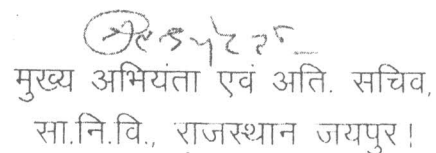 मुख्य अभियंता एवं अति. सचिव,
सा.नि.वि., राजस्थान जयपुर!